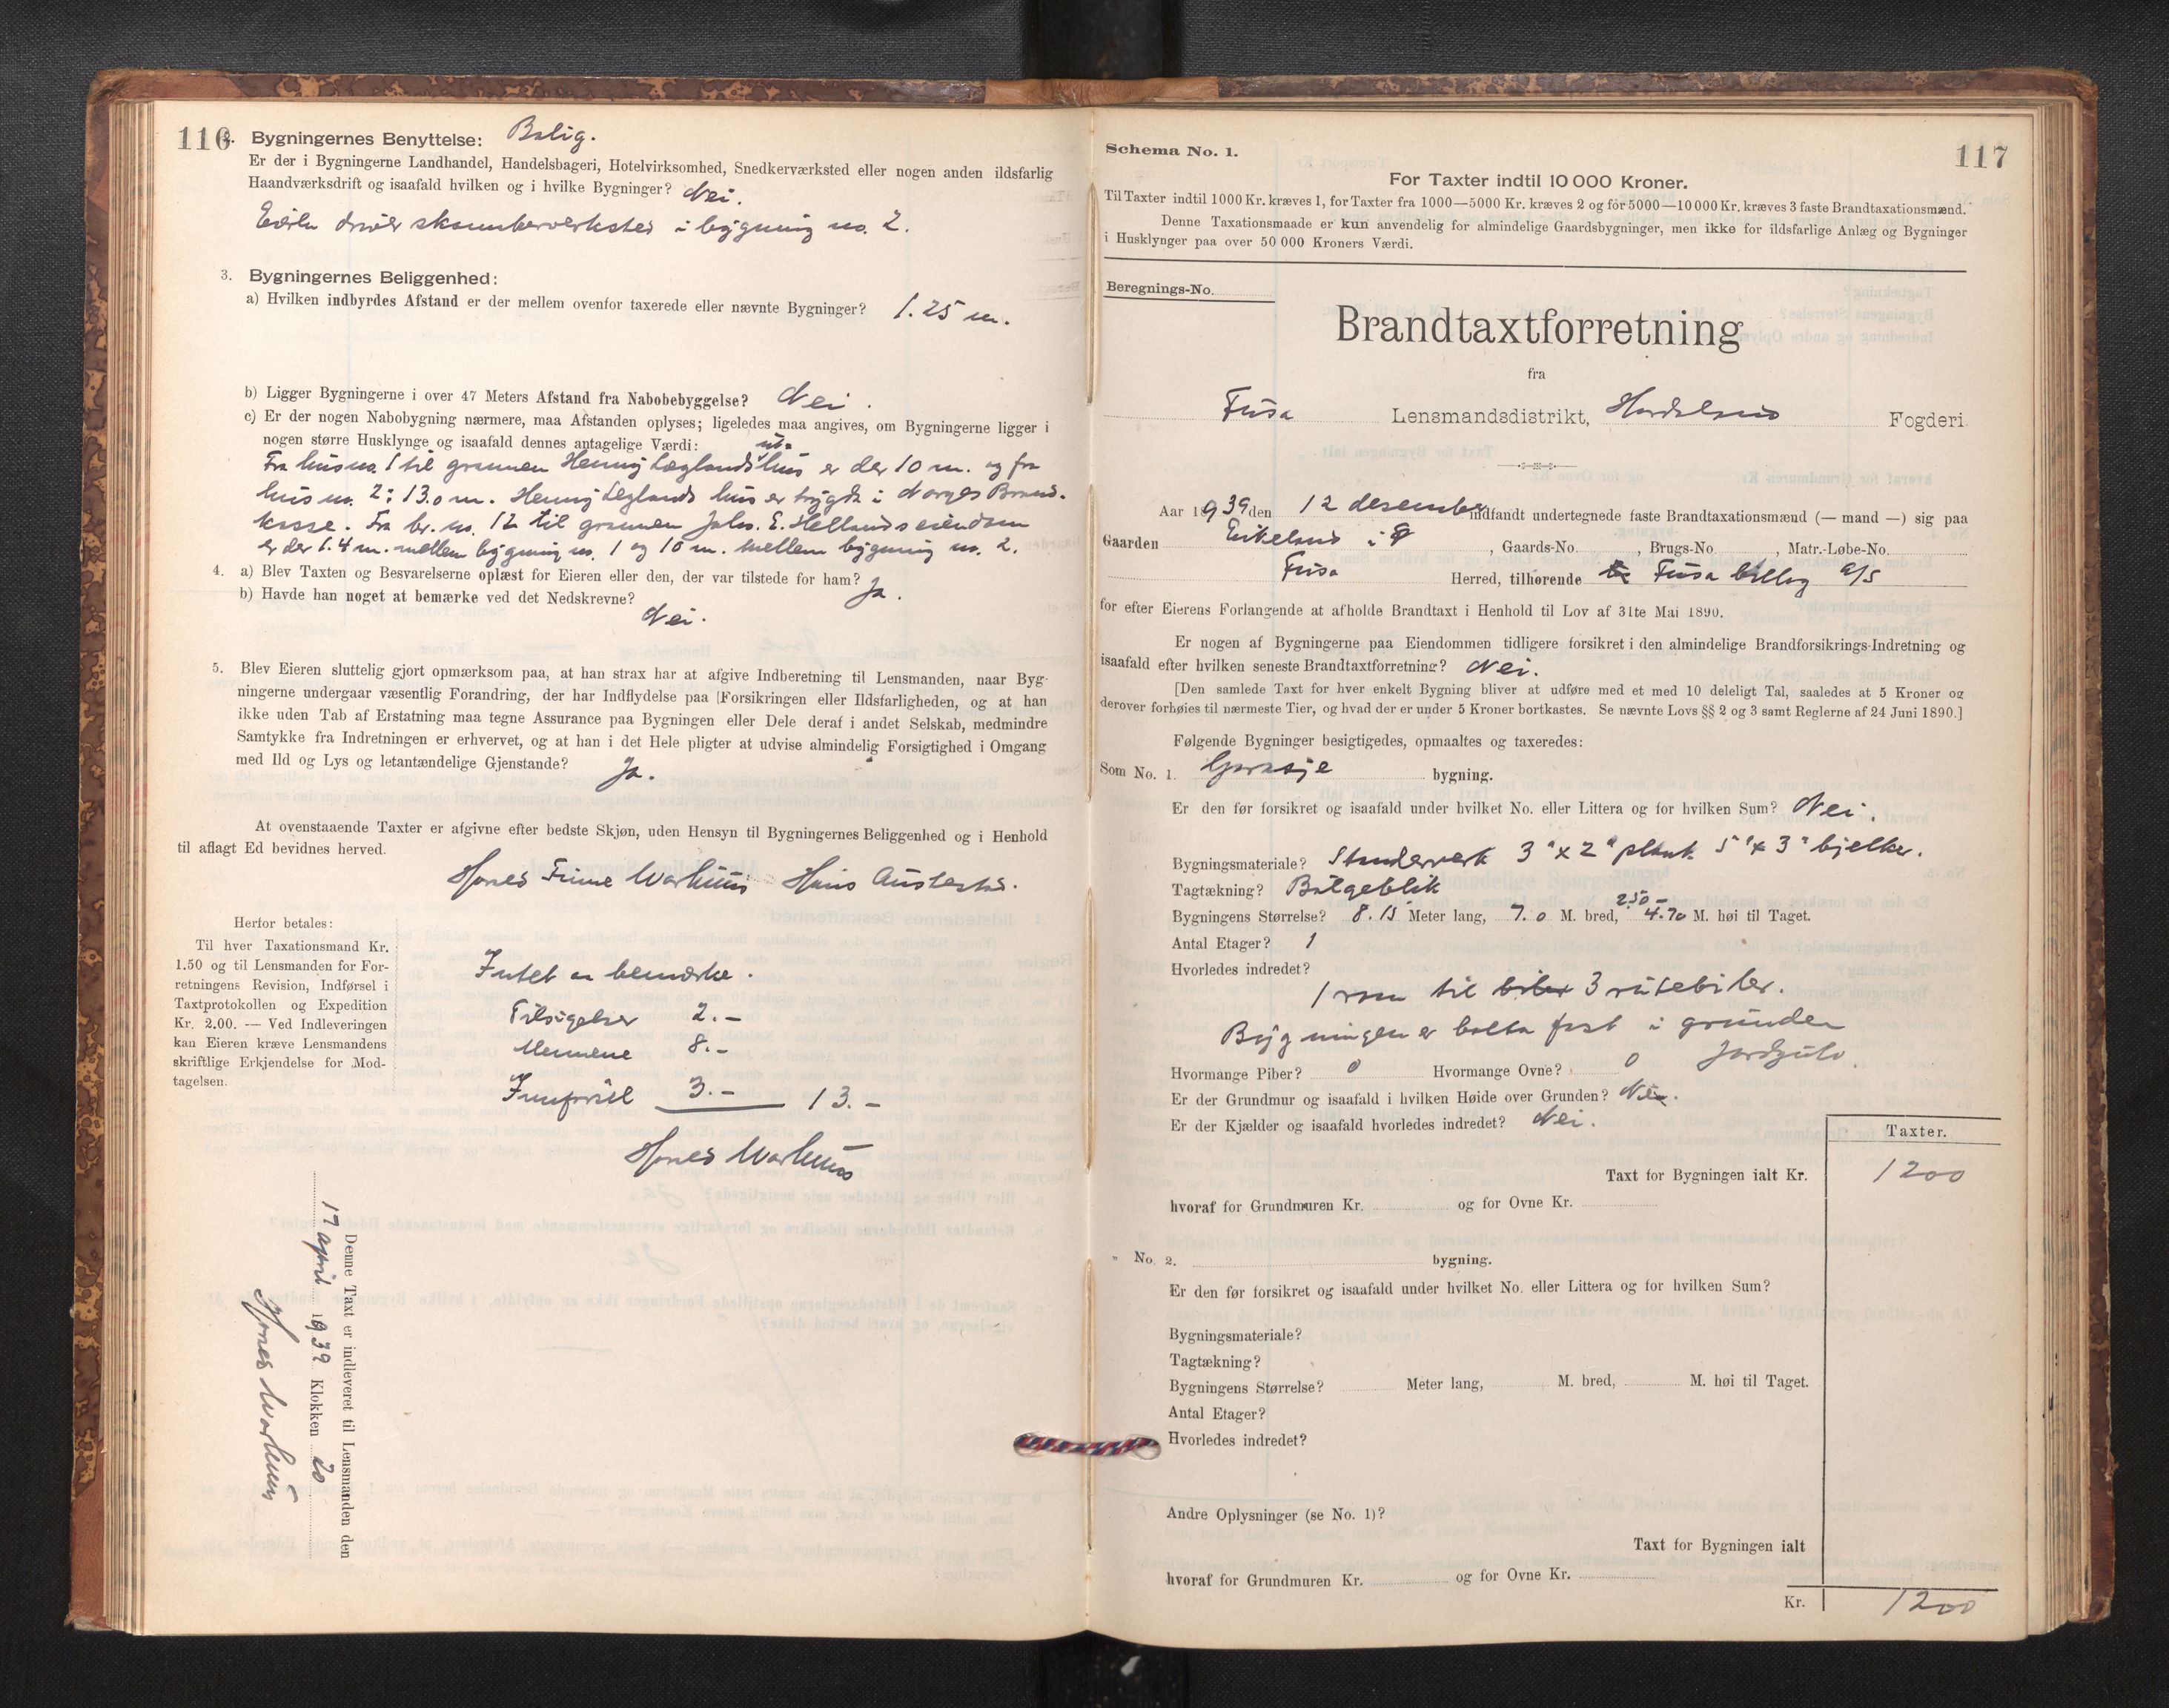 116
2. Bygningernes Benyttelse: Bolig.
Er der i Bygningerne Landhandel, Handelsbageri, Hotelvirksomhed, Snedkerværksted eller nogen anden ildsfarlig
Haandværksdrift og isaafald hvilken og i hvilke Bygninger? Nei.
driver skomakerverksted i bygning no. 2.
3. Bygningernes Beliggenhed:
a) Hvilken indbyrdes Afstand er der mellem ovenfor taxerede eller nævnte Bygninger? 1.25 m.
b) Ligger Bygningerne i over 47 Meters Afstand fra Nabobebyggelse? Nei.
c) Er der nogen Nabobygning nærmere, maa Afstanden oplyses; ligeledes maa angives, om Bygningerne ligger i
nogen større Husklynge og isaafald dennes antagelige Værdi:
Fra hus no. 1 til grannen Henny Leglands hus er der 10 m. og fra
hus no. 2: 13.0 m. Henny Leglands hus er trygda i Norges Brand-
kasse. Fra br. no. 12 til grannen Johs. E. Hellands eiendom
er der 1.4 m. mellem bygning no. 1 og 10 m. mellem bygning no. 2.
4. a) Blev Taxten og Besvarelserne oplæst for Eieren eller den, der var tilstede for ham? Ja.
b) Havde han noget at bemærke ved det Nedskrevne?
Nei.
5. Blev Eieren sluttelig gjort opmærksom paa, at han strax har at afgive Indberetning til Lensmanden, naar Byg-
ningerne undergaar væsentlig Forandring, der har Indflydelse paa Forsikringen eller Ildsfarligheden, og at han
ikke uden Tab af Erstatning maa tegne Assurance paa Bygningen eller Dele deraf i andet Selskab, medmindre
Samtykke fra Indretningen er erhvervet, og at han i det Hele pligter at udvise almindelig Forsigtighed i Omgang
med Ild og Lys og letantændelige Gjenstande? Ja.
At ovenstaaende Taxter er afgivne efter bedste Skjøn, uden Hensyn til Bygningernes Beliggenhed og i Henhold
til aflagt Ed bevidnes herved.
Warhuus Hans Austestad.
Herfor betales:
Til hver Taxationsmand Kr.
1.50 og til Lensmanden for For-
retningens Revision, Indførsel i
Taxtprotokollen og Expedition
Kr. 2.00. — Ved Indleveringen
kan Eieren kræve Lensmandens
skriftlige Erkjendelse for Mod-
tagelsen.
Intet at bemerke.
Tilsigelser 2.-
Mennene 8.-
Innførsel 3.- 13.-
Warhuus
Denne Taxt er indleveret til Lensmanden den
17 april 1939 Klokken 20
Warhuus
Schema No. 1.
117
For Taxter indtil 10 000 Kroner.
Til Taxter indtil 1000 Kr. kræves 1, for Taxter fra 1000—5000 Kr. kræves 2 og for 5000—10 000 Kr. kræves 3 faste Brandtaxationsmænd.
Denne Taxationsmaade er kun anvendelig for almindelige Gaardsbygninger, men ikke for ildsfarlige Anlæg og Bygninger
i Husklynger paa over 50 000 Kroners Værdi.
Beregnings-No.
Brandtaxtforretning
fra
Fusa Lensmandsdistrikt, Hordaland Fogderi
Aar 1939 den 12 desember indfandt undertegnede faste Brandtaxationsmænd (— mand —) sig paa
Gaarden Eikeland i , Gaards-No. , Brugs-No. , Matr.-Løbe-No.
Fusa Herred, tilhørende Fusa billag a/s
for efter Eierens Forlangende at afholde Brandtaxt i Henhold til Lov af 31te Mai 1890.
Er nogen af Bygningerne paa Eiendommen tidligere forsikret i den almindelige Brandforsikrings-Indretning og
isaafald efter hvilken seneste Brandtaxtforretning? Nei.
[Den samlede Taxt for hver enkelt Bygning bliver at udføre med et med 10 deleligt Tal, saaledes at 5 Kroner og
derover forhøies til nærmeste Tier, og hvad der er under 5 Kroner bortkastes. Se nævnte Lovs §§ 2 og 3 samt Reglerne af 24 Juni 1890.]
Følgende Bygninger besigtigedes, opmaaltes og taxeredes:
Som No. 1. Garasje bygning.
Er den før forsikret og isaafald under hvilket No. eller Littera og for hvilken Sum? Nei.
Bygningsmateriale? Standerverk 3" x 2" plank 5" x 3" bjelker.
Tagtækning? Bølgeblik
Bygningens Størrelse? 8.15 Meter lang, 7.0 M. bred, 2.50 – 4.70 M. høi til Taget.
Antal Etager? 1
Hvorledes indredet?
1 rom til biler 3 rutebiler.
Bygningen er bolta fast i grunden
Jordgulv.
Hvormange Piber? 0 Hvormange Ovne? 0
Er der Grundmur og isaafald i hvilken Høide over Grunden? Nei.
Er der Kjælder og isaafald hvorledes indredet? Nei.
Taxter.
Taxt for Bygningen ialt Kr. 1200
hvoraf for Grundmuren Kr. og for Ovne Kr.
" No. 2. bygning.
Er den før forsikret og isaafald under hvilket No. eller Littera og for hvilken Sum?
Bygningsmateriale?
Tagtækning?
Bygningens Størrelse? Meter lang, M. bred, M. høi til Taget.
Antal Etager?
Hvorledes indredet?
Andre Oplysninger (se No. 1)?
Taxt for Bygningen ialt
hvoraf for Grundmuren Kr. og for Ovne Kr.
Kr. 1200